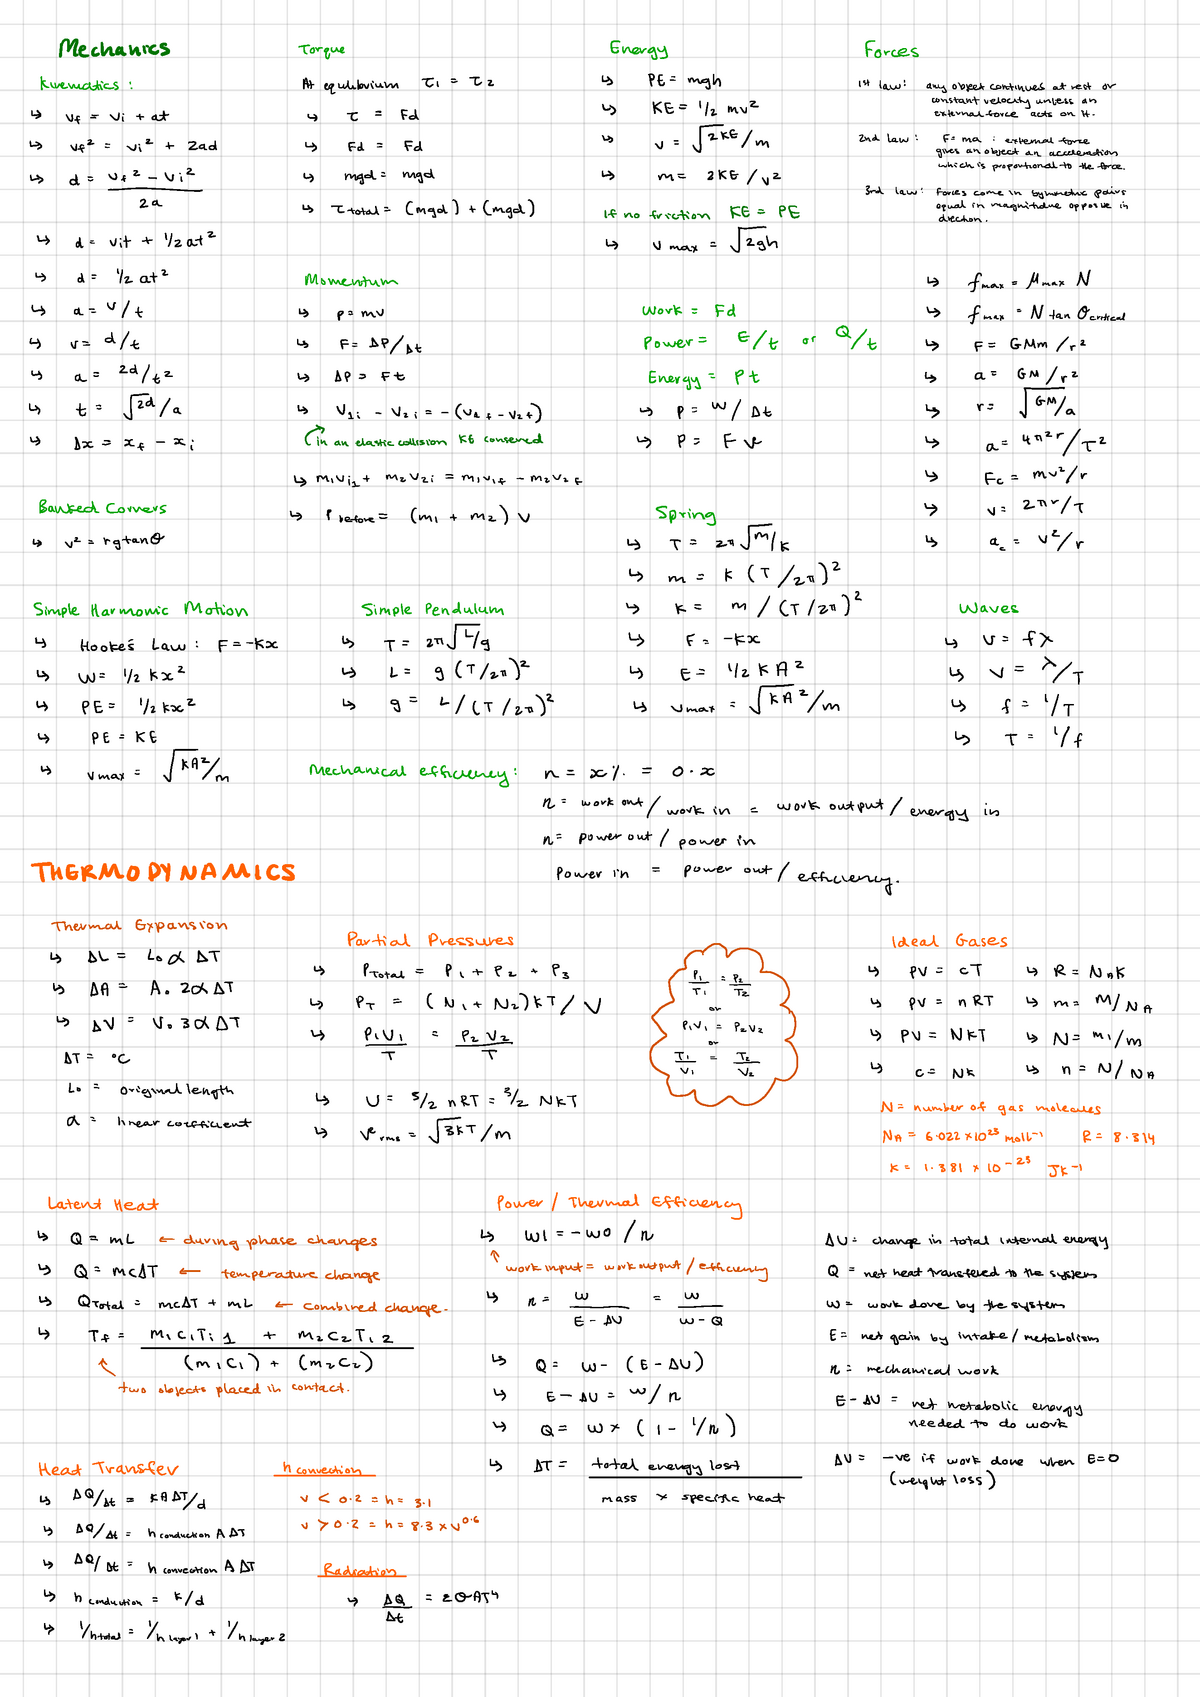 Mechanics
Kinematics :
↳ vf = vi + at
↳ vf² = vi² + 2ad
↳ d = vf² - vi² / 2a
↳ d = vit + 1/2 at²
↳ d = 1/2 at²
↳ a = v/t
↳ v = d/t
↳ a = 2d/t²
↳ t = √2d/a
↳ Δx = xf - xi
Banked Corners
↳ v² = rgtanθ
Torque
At equilibrium τ1 = τ2
↳ τ = Fd
↳ Fd = Fd
↳ mgd = mgd
↳ τtotal = (mgd) + (mgd)
Momentum
↳ p = mv
↳ F = ΔP/Δt
↳ ΔP = Ft
↳ V1i - V2i = -(V1f - V2f)
(in an elastic collision KE conserved
↳ m1Vi1 + m2V2i = m1V1f - m2V2f
↳ Pbefore = (m1 + m2) V
Energy
↳ PE = mgh
↳ KE = 1/2 mv²
↳ v = √2KE/m
↳ m = 2KE/v²
If no friction KE = PE
↳ vmax = √2gh
Work = Fd
Power = E/t or Q/t
Energy = Pt
↳ P = W/Δt
↳ P = Fv
Spring
↳ T = 2π√m/k
↳ m = k (T/2π)²
↳ k = m / (T/2π)²
↳ F = -kx
↳ E = 1/2 kA²
↳ vmax = √kA²/m
Forces
1st law: any object continues at rest or
constant velocity unless an
external force acts on it.
2nd law : F = ma : external force
gives an object an acceleration
which is proportional to the force.
3rd law: Forces come in symmetric pairs
equal in magnitude opposite in
direction.
↳ fmax = μmax N
↳ fmax = N tan θcritical
↳ F = GMm/r²
↳ a = GM/r²
↳ r = √GM/a
↳ a = 4π²r/T²
↳ Fc = mv²/r
↳ v = 2πr/T
↳ ac = v²/r
Simple Harmonic Motion
↳ Hooke's Law : F = -kx
↳ W = 1/2 kx²
↳ PE = 1/2 kx²
↳ PE = KE
↳ vmax = √kA²/m
Simple Pendulum
↳ T = 2π√L/g
↳ L = g (T/2π)²
↳ g = L/(T/2π)²
Waves
↳ v = fλ
↳ v = λ/T
↳ f = 1/T
↳ T = 1/f
Mechanical efficiency: n = x% = 0.x
n = work out / work in = work output / energy in
n = power out / power in
Power in = power out / efficiency.
THERMODYNAMICS
Thermal Expansion
↳ ΔL = L₀α ΔT
↳ ΔA = A₀ 2αΔT
↳ ΔV = V₀ 3αΔT
ΔT = °C
L₀ = original length
α = linear coefficient
Partial Pressures
↳ PTotal = P1 + P2 + P3
↳ PT = (N1 + N2)kT / V
↳ P1V1/T = P2V2/T
↳ U = 5/2 nRT = 3/2 NkT
↳ vrms = √3kT/m
P1/T1 = P2/T2
or
P1V1 = P2V2
or
T1/V1 = T2/V2
Ideal Gases
↳ PV = cT ↳ R = NAk
↳ PV = nRT ↳ m = M/NA
↳ PV = NkT ↳ N = m1/m
↳ c = Nk ↳ n = N/NA
N = number of gas molecules
NA = 6.022 ×10²³ moll⁻¹ R = 8.314
k = 1.381 × 10⁻²³ Jk⁻¹
Latent Heat
↳ Q = mL ← during phase changes
↳ Q = mcΔT ← temperature change
↳ QTotal = mcΔT + mL ← combined change.
↳ Tf = m1C1Ti1 + m2C2Ti2 / (m1C1) + (m2C2)
two objects placed in contact.
Power / Thermal Efficiency
↳ WI = -WO/n
work input = work output / efficiency
↳ n = W / E - ΔU = W / W - Q
↳ Q = W - (E - ΔU)
↳ E - ΔU = W/n
↳ Q = W × (1 - 1/n)
↳ ΔT = total energy lost / mass × specific heat
ΔU = change in total internal energy
Q = net heat transfered to the system
W = work done by the system
E = net gain by intake / metabolism
n = mechanical work
E - ΔU = net metabolic energy
needed to do work
ΔU = -ve if work done when E=0
(weight loss)
Heat Transfer
↳ ΔQ/Δt = kAΔT/d
↳ ΔQ/Δt = hconduction A ΔT
↳ ΔQ/Δt = hconvection A ΔT
↳ hconduction = k/d
↳ 1/htotal = 1/hlayer1 + 1/hlayer2
h convection
v < 0.2 = h = 3.1
v > 0.2 = h = 8.3 × v^0.6
Radiation
↳ ΔQ/Δt = εσAT⁴